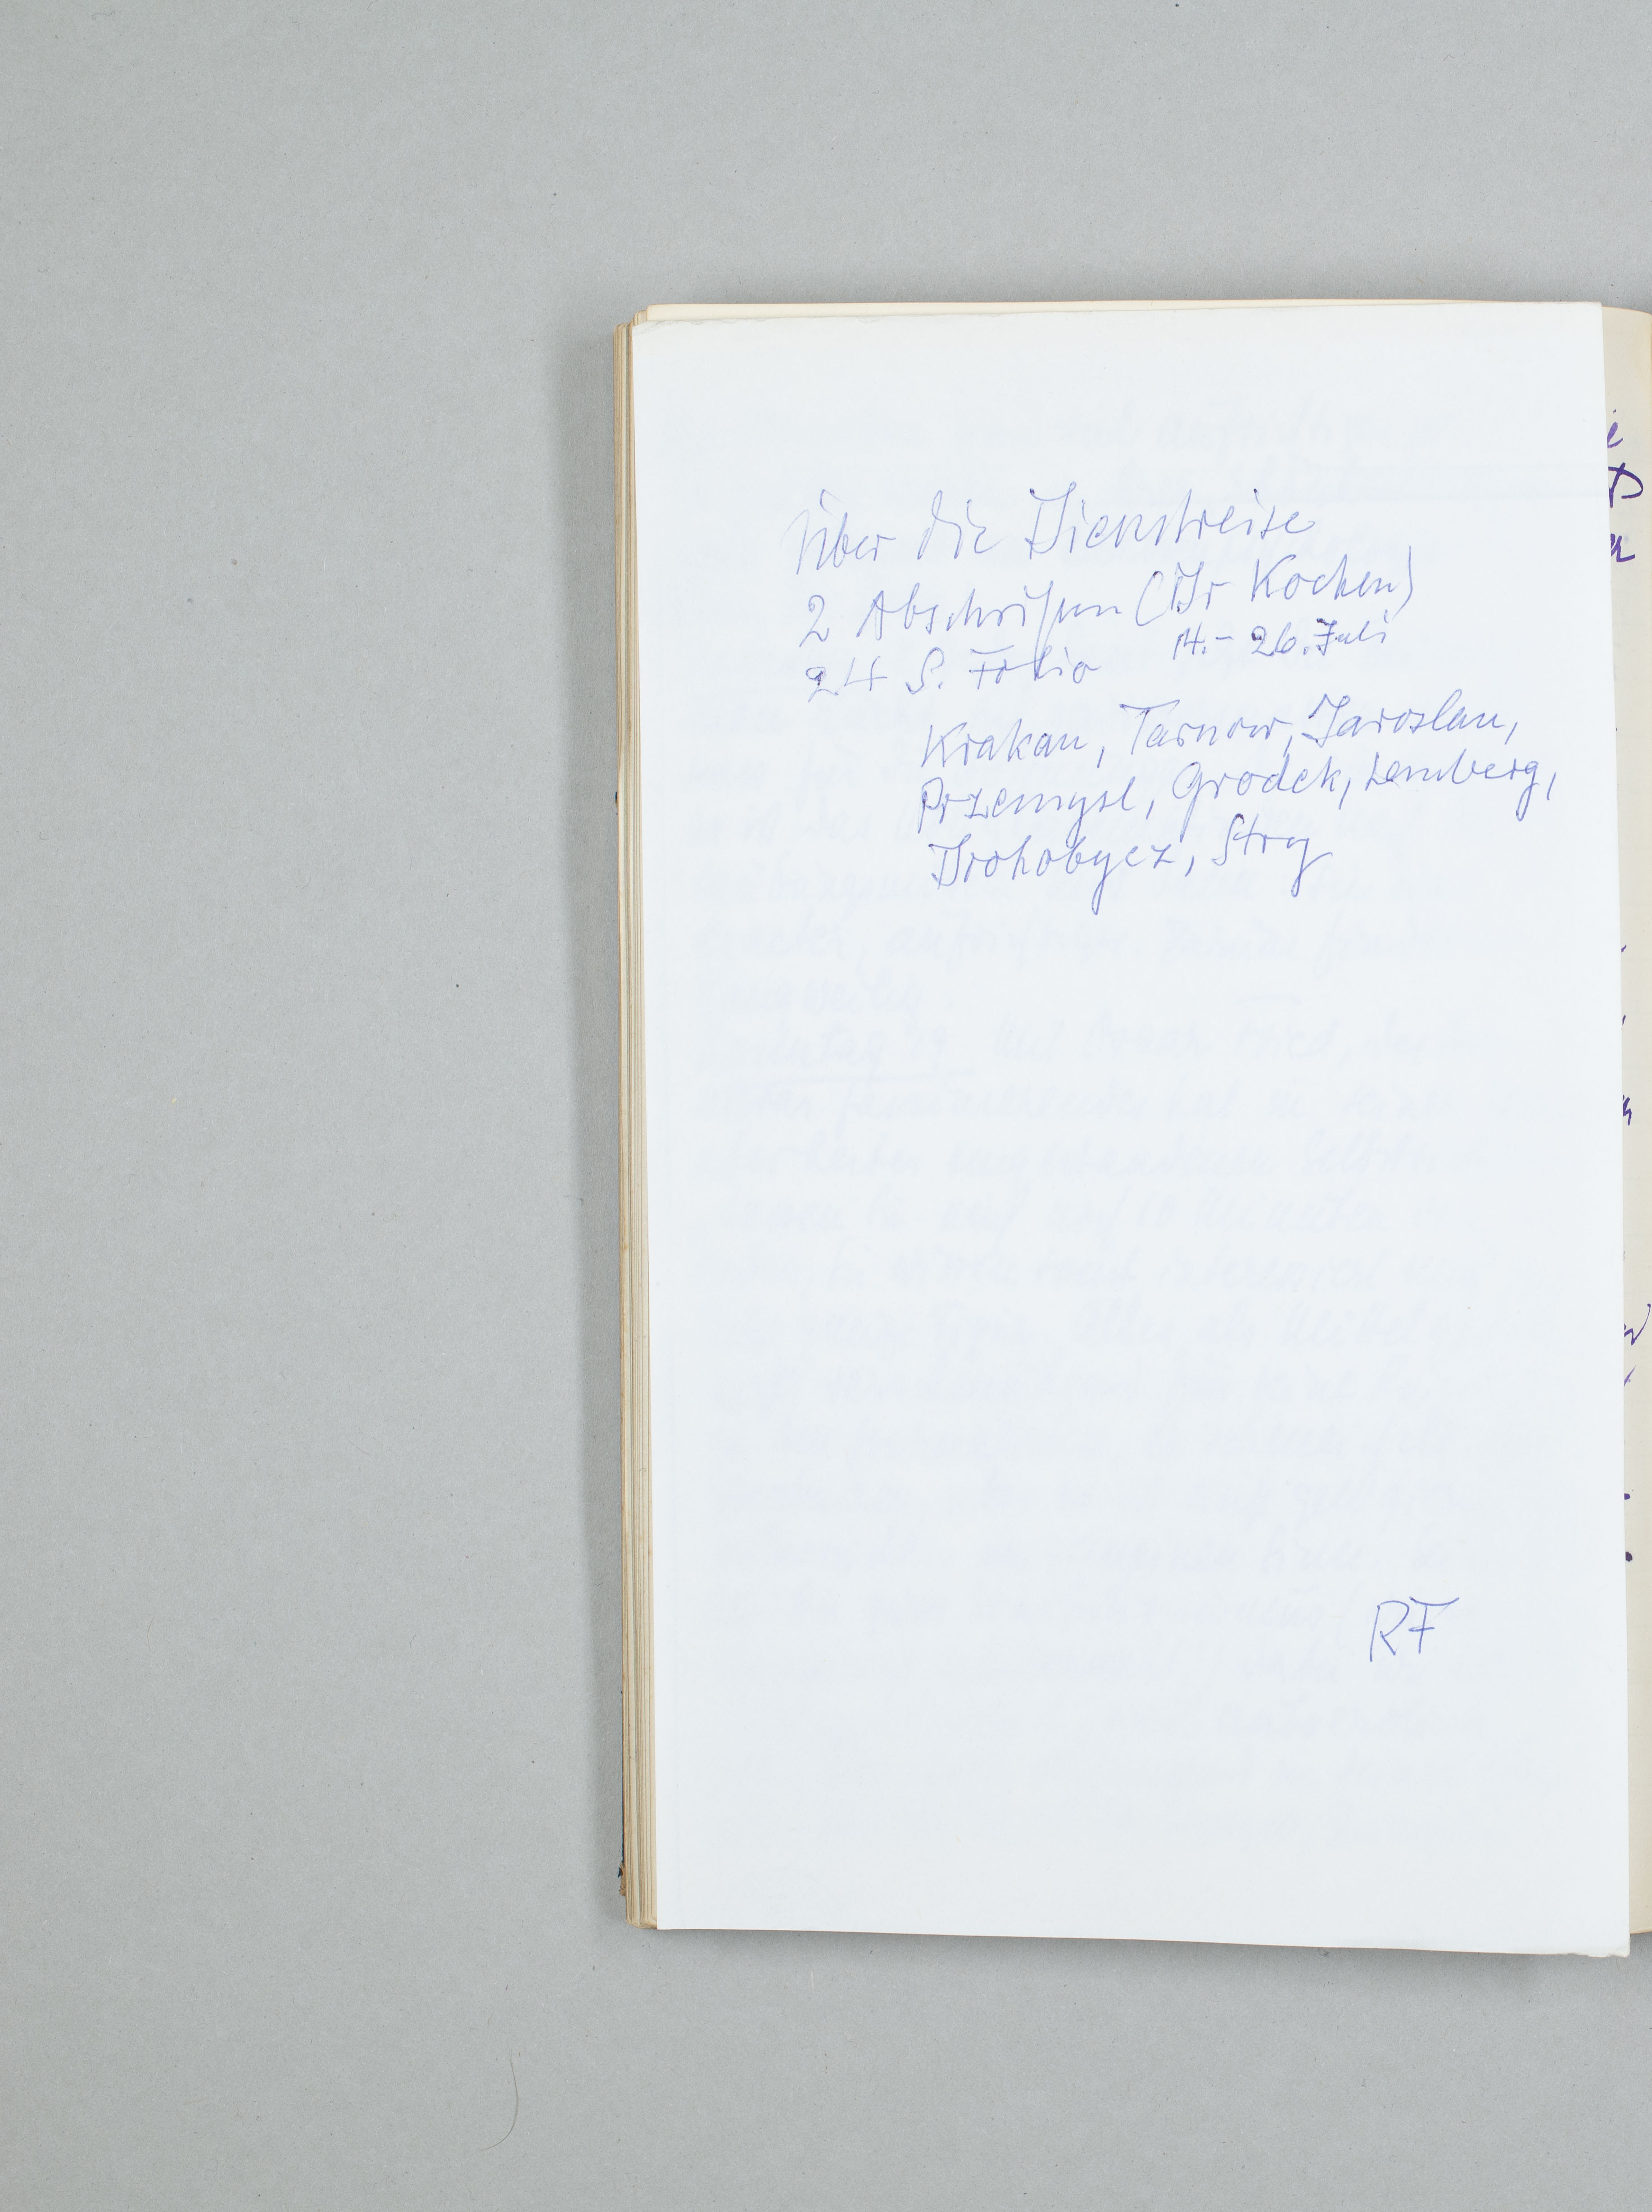 Über die Dienstreise
2 Abschriften (Dr Kochen)
24 S. Folio 14.- 26. Juli
Krakau, Tarnow, Jaroslau,
Przemysl, Grodek, Lemberg,
Drohobycz, Stry
RF